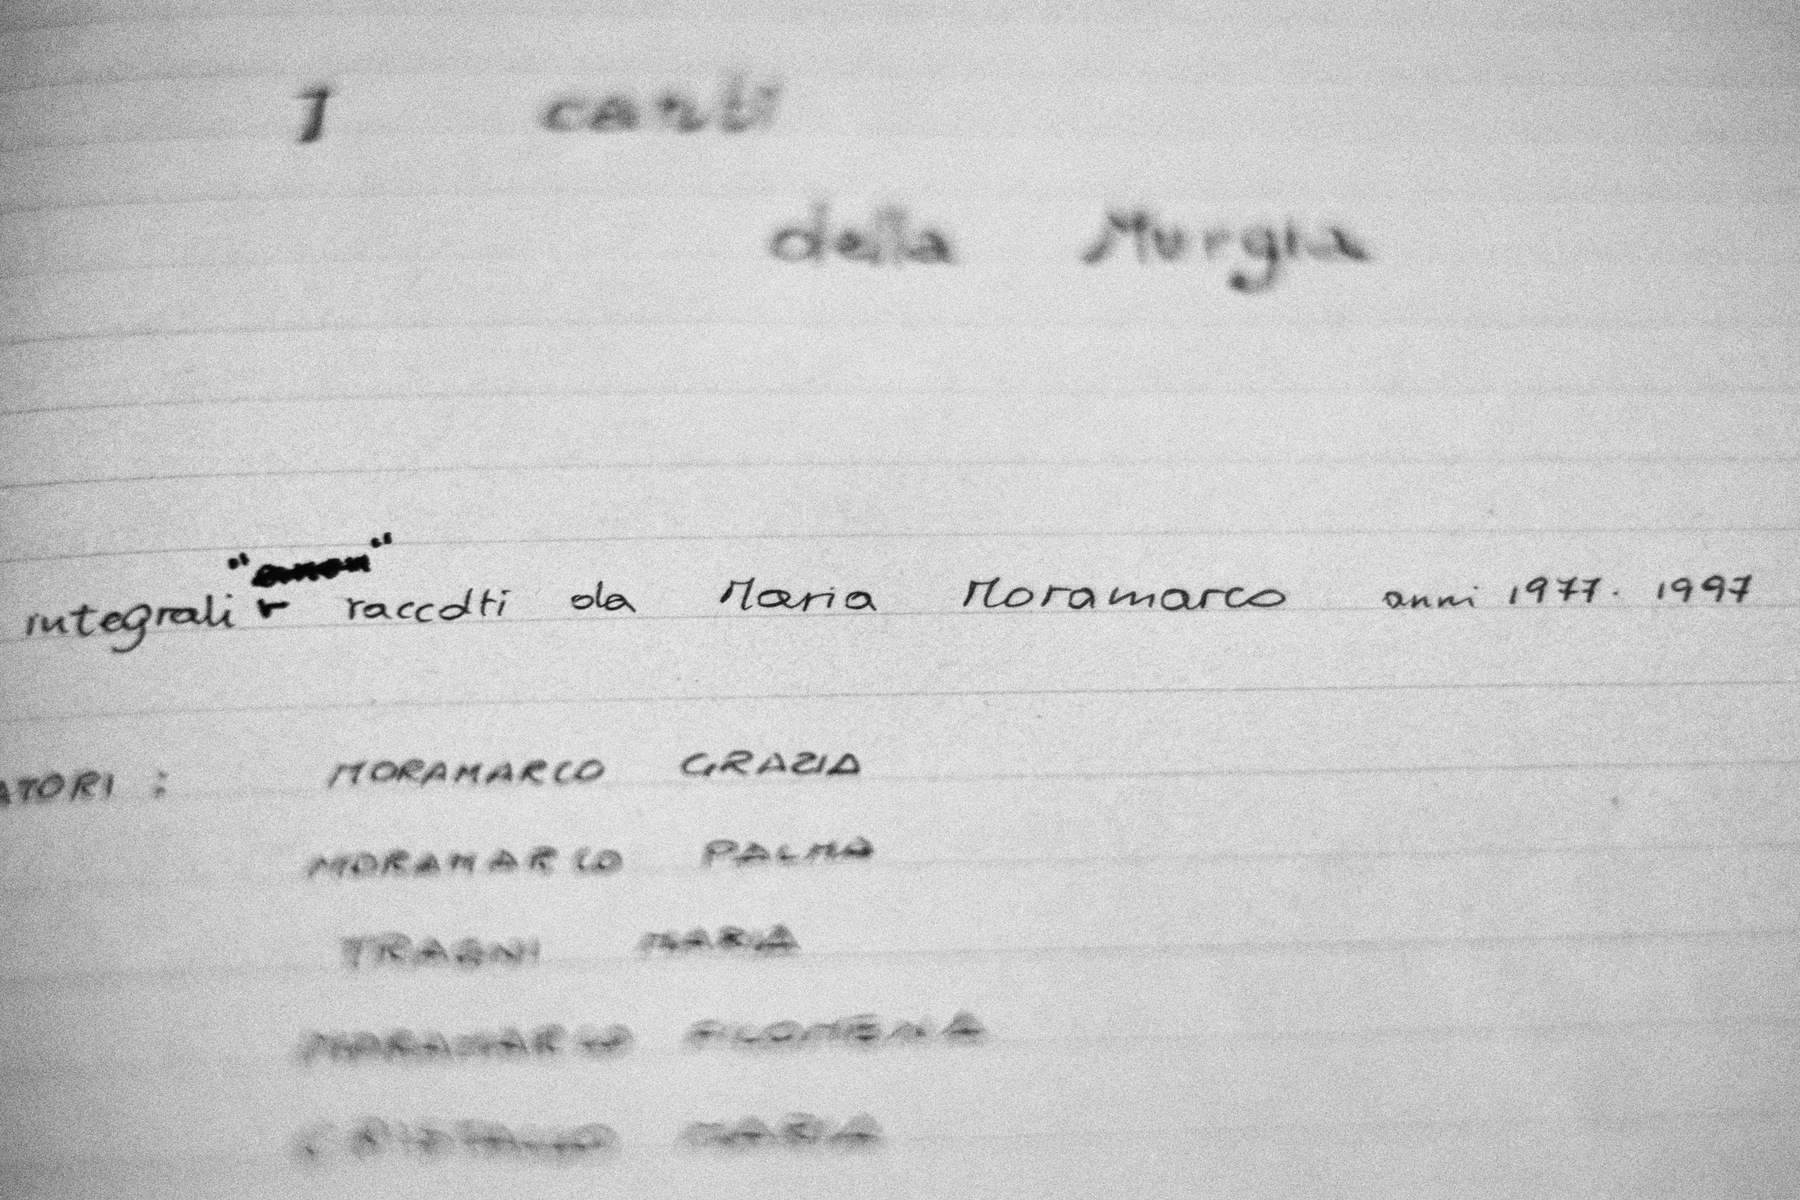 I canti
della Murgia
integrali raccolti da Maria Moramarco anni 1977. 1997
ATORI : MORAMARCO GRAZIA
MORAMARCO PALMA
TRAGNI MARIA
MORAMARCO FILOMENA
MARIA